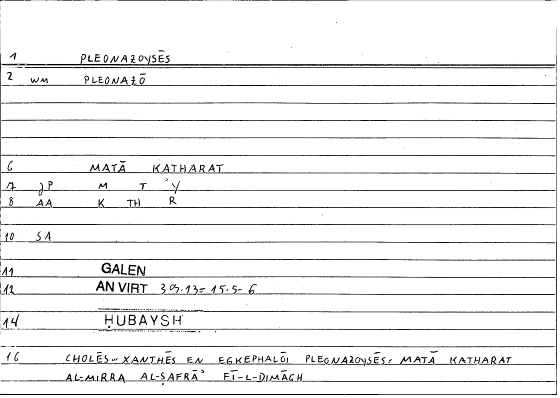 1 PLEONAZOYSĒS
2 WM PLEONAZŌ
6 MATĀ KATHARAT
7 JP M T ʾY
8 AA K TH R
10 SA
11 GALEN
12 AN VIRT 39.13= 15.5-6
14 ḤUBAYSH
16 CHOLĒS.. XANTHĒS EN EGKEPHALŌI PLEONAZOYSĒS= MATĀ KATHARAT
AL-MIRRA AL-ṢAFRĀʾ FĪ-L-DIMĀGH